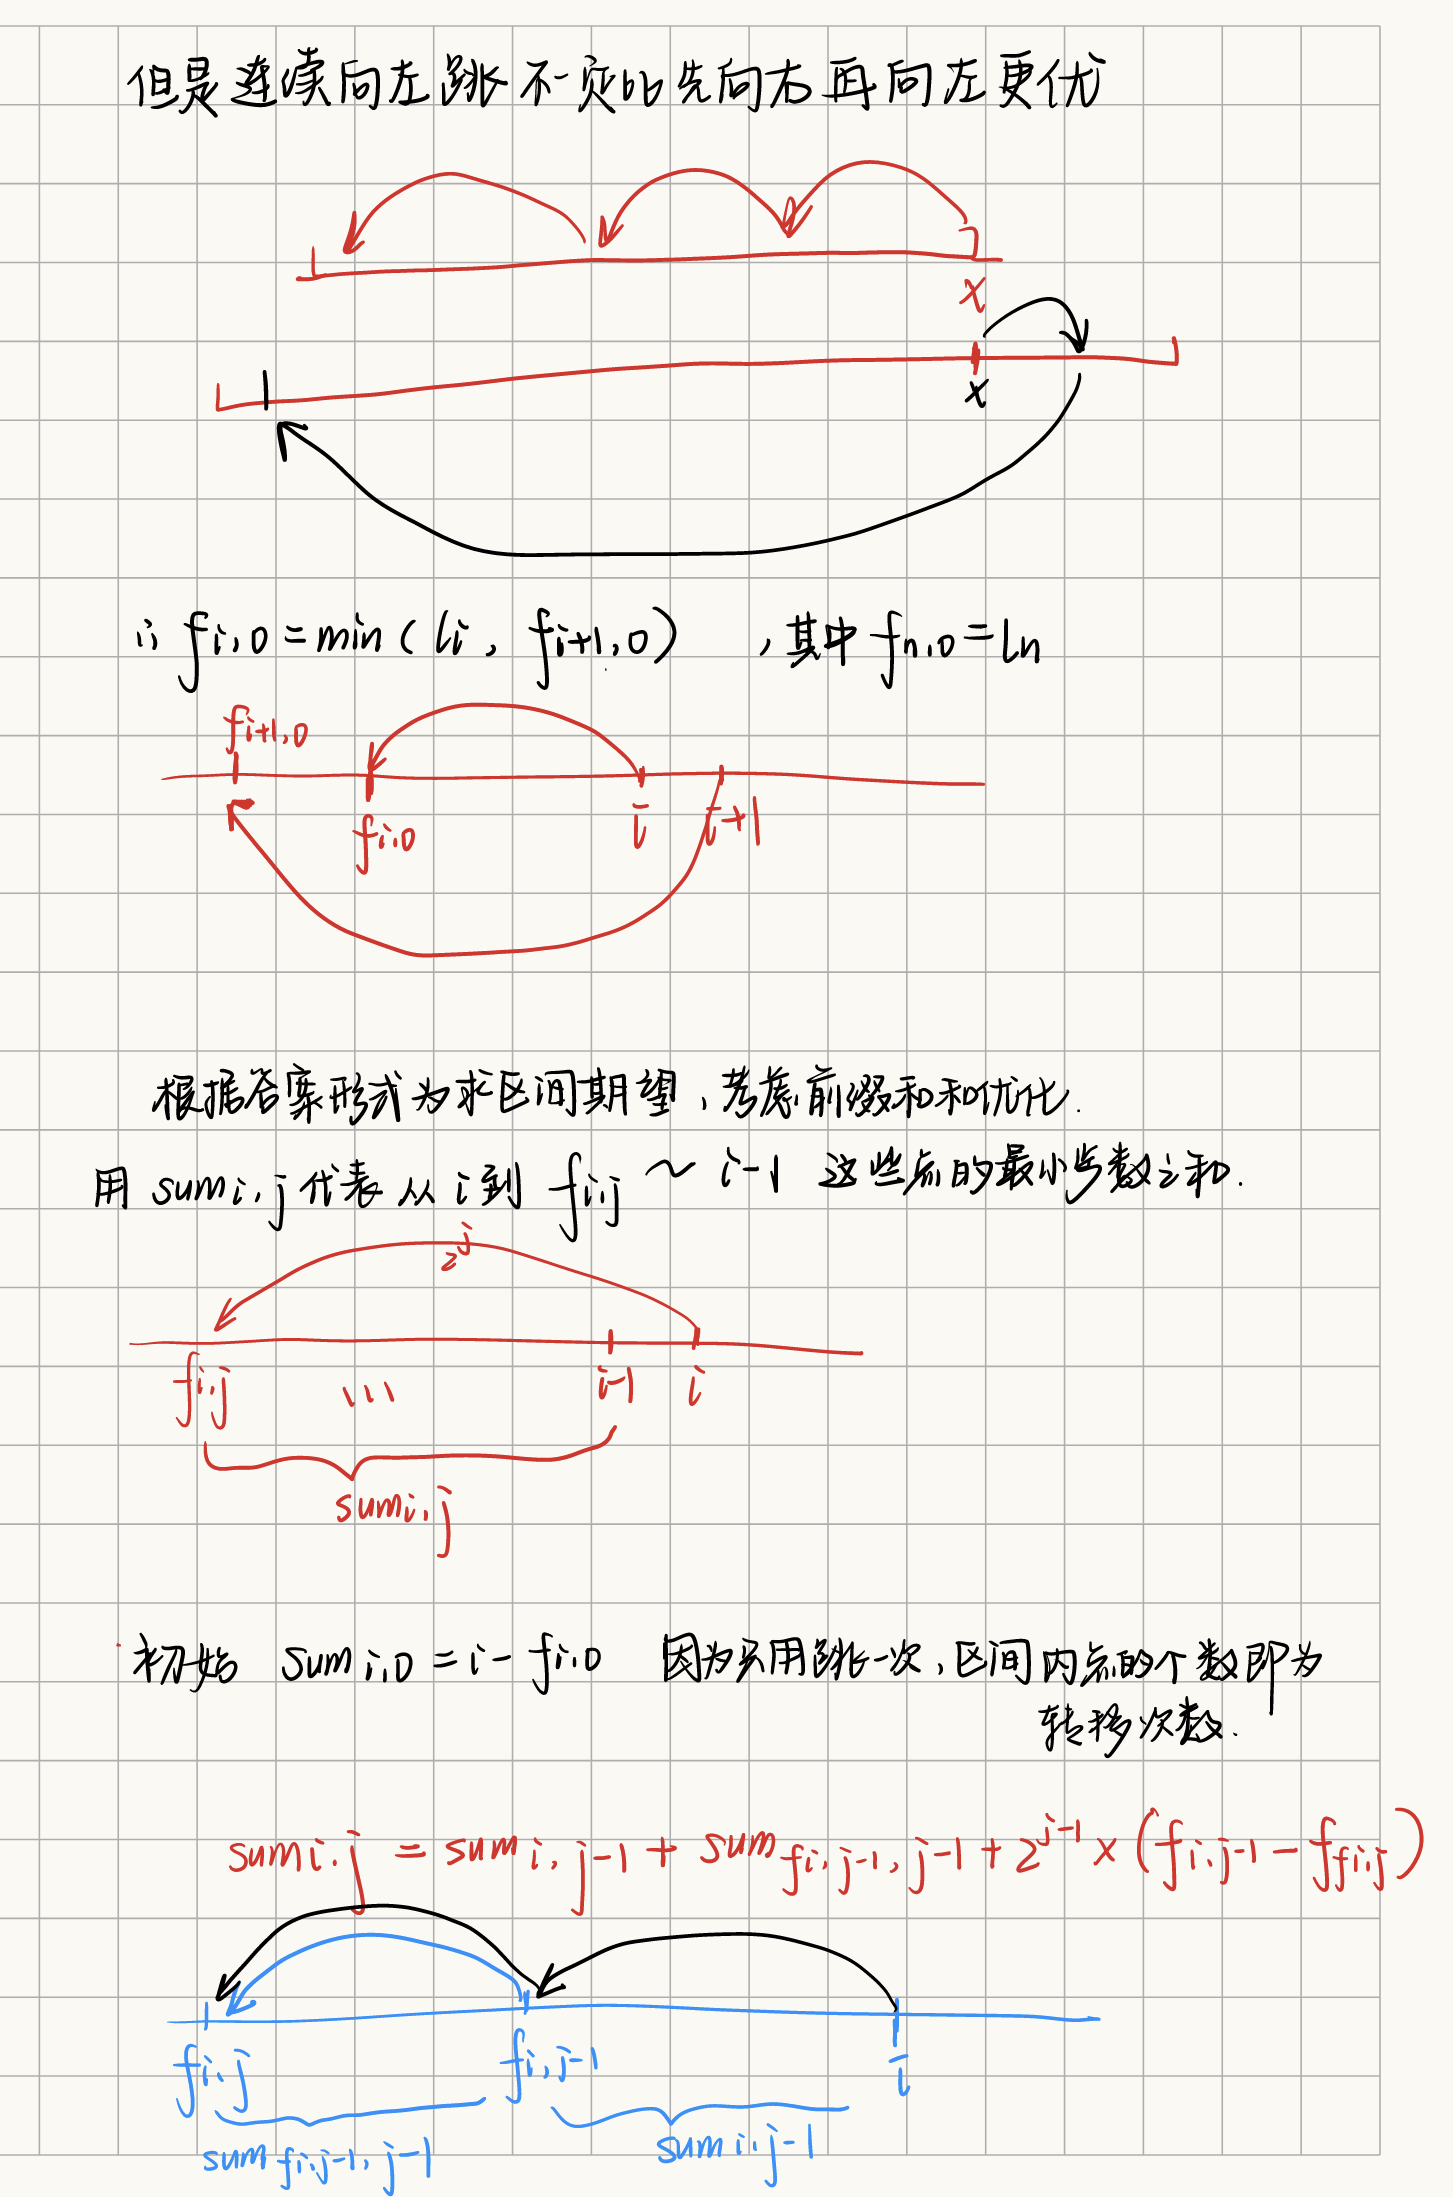 但是连续向左跳不一定比先向右再向左更优
x
x
i, fi,0 = min( li , fi+1,0 ) ,其中 fn,0 = ln
fi+1,0
fi,0 i i+1
根据答案形式为求区间期望,考虑前缀和和优化.
用 sumi,j 代表从 i 到 fi,j ~ i-1 这些点的最小步数之和.
2^j
fi,j ... i-1 i
sumi,j
初始 sumi,0 = i - fi,0 因为只用跳一次,区间内点的个数即为
转移次数.
sumi,j = sumi,j-1 + sumfi,j-1,j-1 + 2^j-1 × (fi,j-1 - ffi,j)
fi,j fi,j-1 i
sumfi,j-1,j-1 sumi,j-1